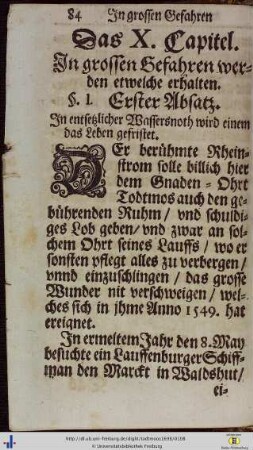 84 In grossen Gefahren
Das X. Capitel.
In grossen Gefahren wer-
den etwelche erhalten.
§. I. Erster Absatz.
In entsetzlicher Wassersnoth wird einem
das Leben gefristet.
DEr berühmte Rhein-
strom solle billich hier
dem Gnaden-Ohrt
Todtmos auch den ge-
bührenden Ruhm/ vnd schuldi-
ges Lob geben/ vnd zwar an sol-
chem Ohrt seines Lauffs/ wo er
sonsten pflegt alles zu verbergen/
vnnd einzuschlingen/ das grosse
Wunder nit verschweigen/ wel-
ches sich in jhme Anno 1549. hat
ereignet.
In ermeltem Jahr den 8. May
besuchte ein Lauffenburger Schiff-
man den Marckt in Waldshut/
ei-
© Universitätsbibliothek Freiburg